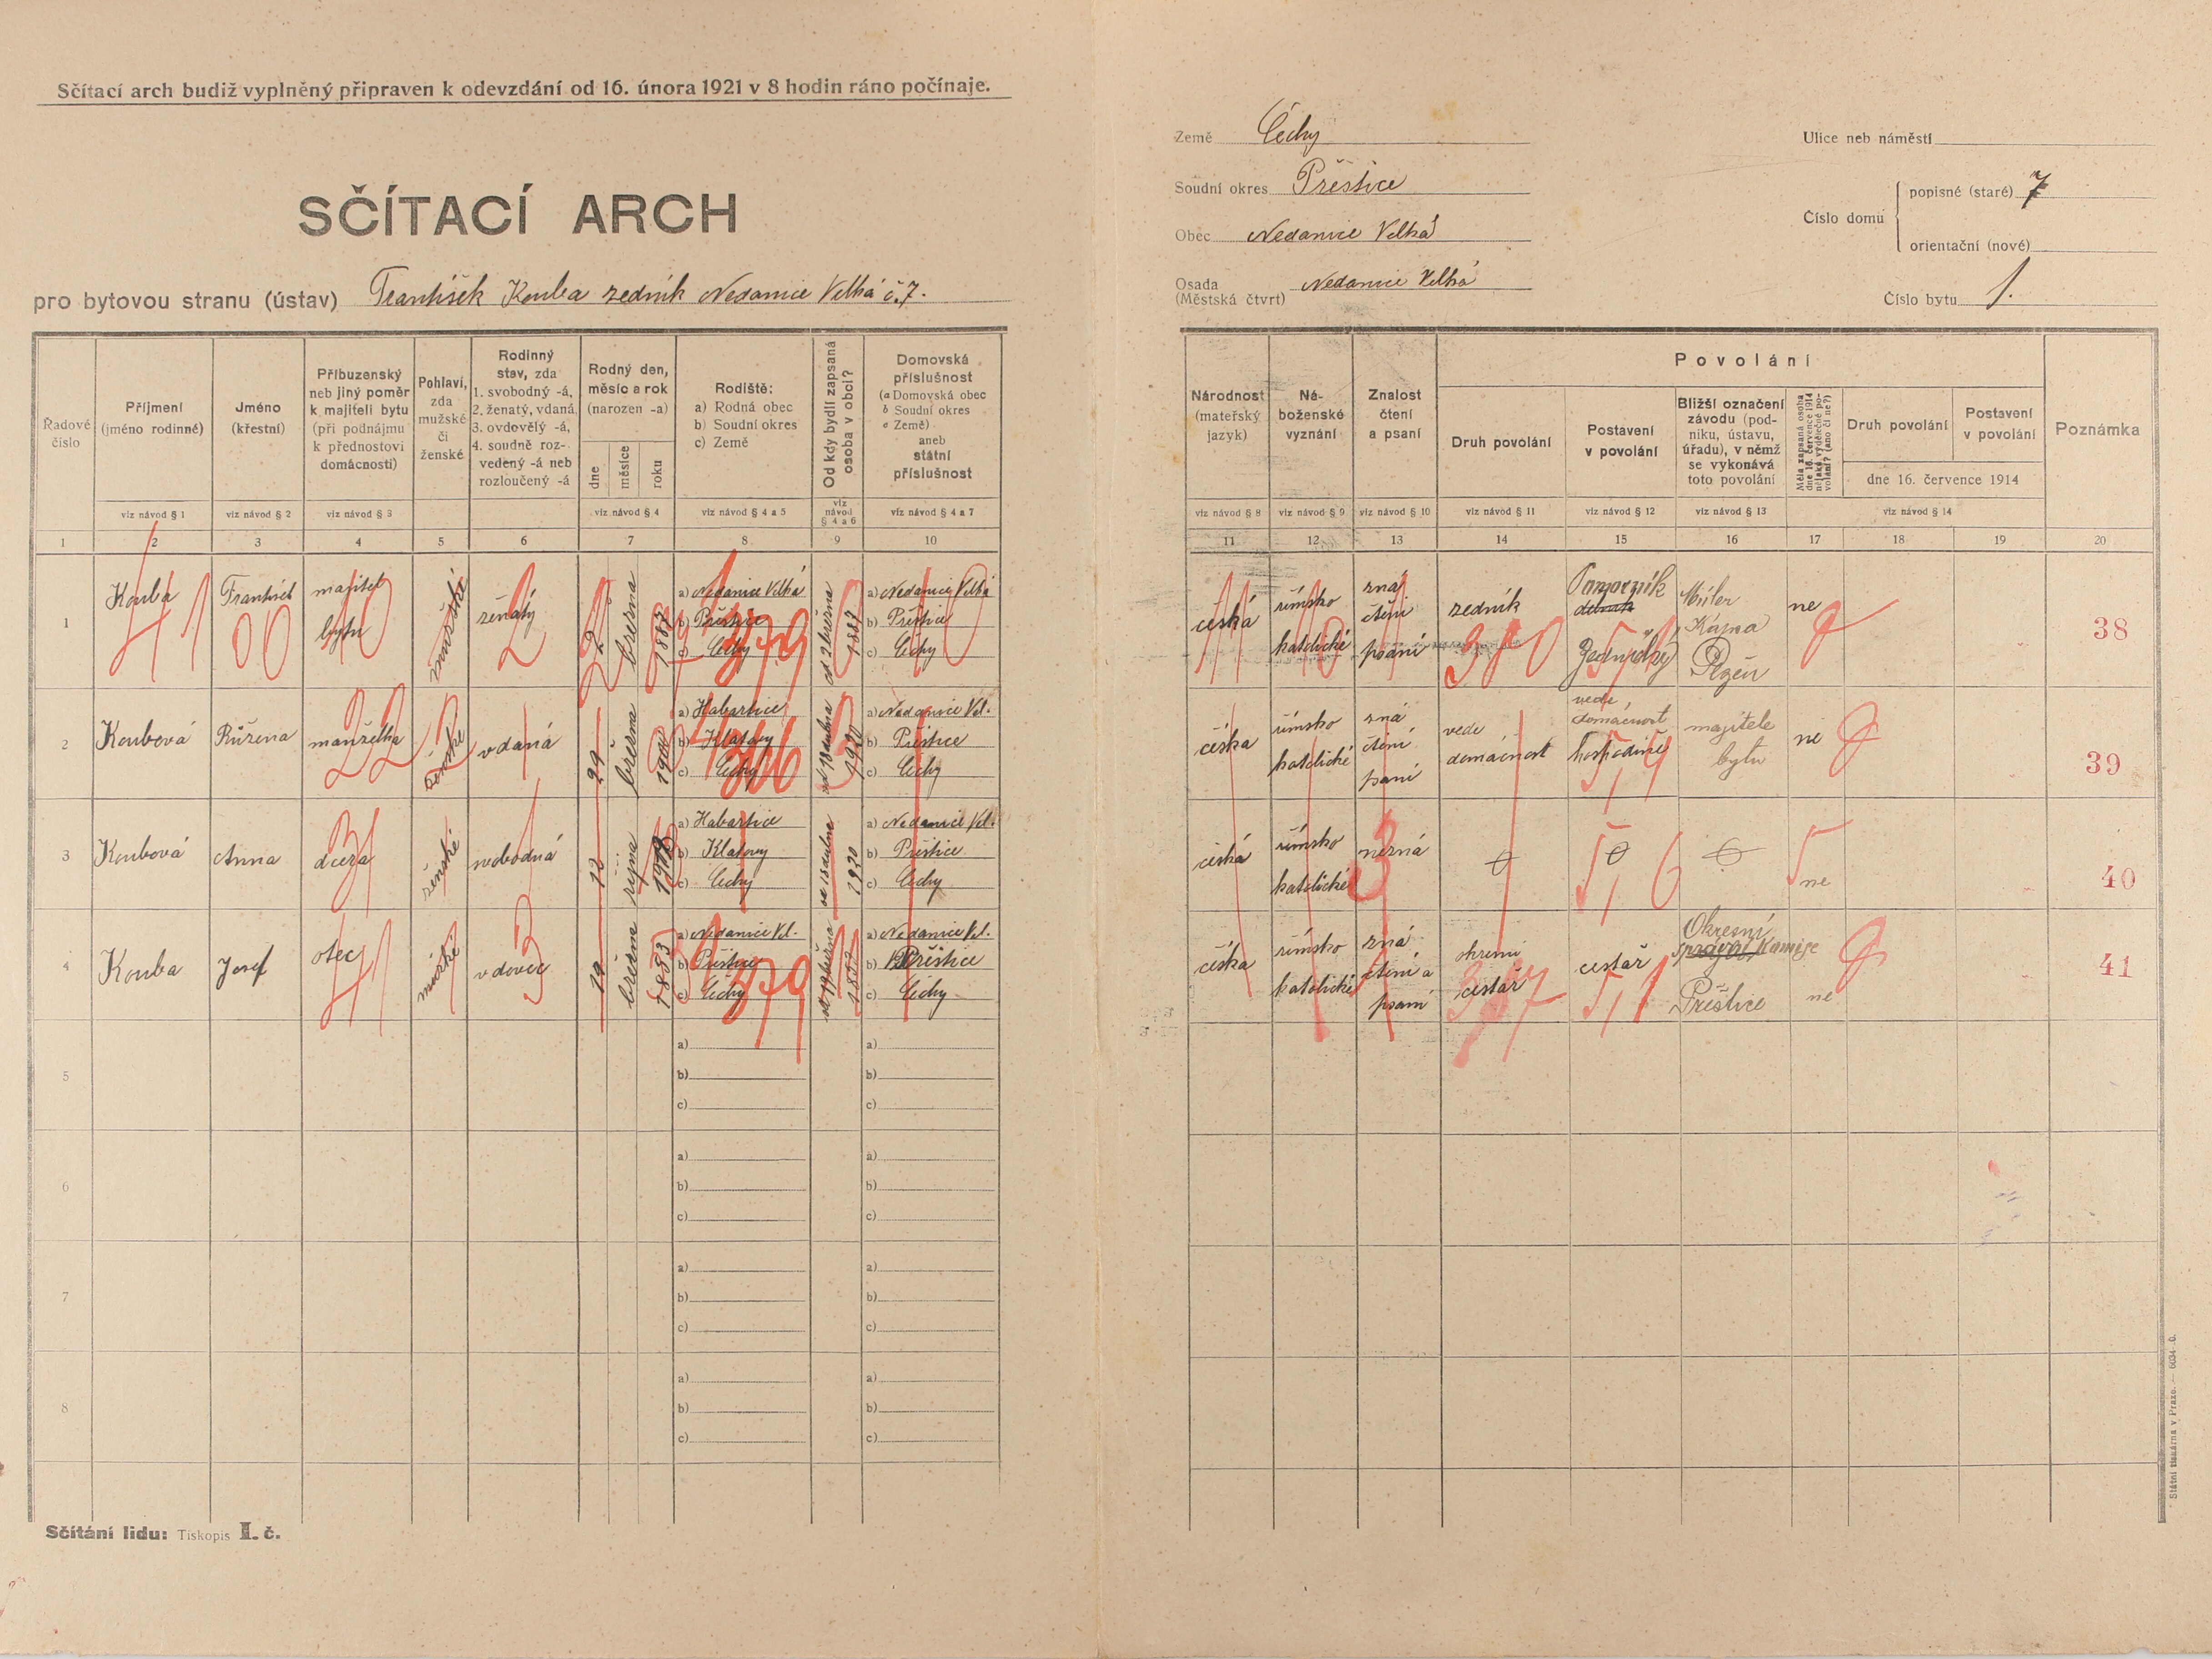 Sčítací arch budiž vyplněný připraven k odevzdání od 16. února 1921 v 8 hodin ráno počínaje.
SČÍTACÍ ARCH
pro bytovou stranu (ústav) František Kouba zedník Nedanice Velká č. 7.
Země Čechy
Soudní okres Přeštice
Obec Nedanice Velká
Osada (Městská čtvrt) Nedanice Velká
Ulice neb náměstí
Číslo domu
popisné (staré) 7
orientační (nové)
Číslo bytu 1.
Řadové číslo
Příjmení (jméno rodinné)
Jméno (křestní)
Příbuzenský neb jiný poměr k majiteli bytu (při podnájmu k přednostovi domácnosti)
Pohlaví, zda mužské či ženské
Rodinný stav, zda 1. svobodný -á, 2. ženatý, vdaná, 3. ovdovělý -á, 4. soudně rozvedený -á neb rozloučený -á
Rodný den, měsíc a rok (narozen -a)
dne
měsíce
roku
Rodiště: a) Rodná obec b) Soudní okres c) Země
Od kdy bydlí zapsaná osoba v obci?
Domovská příslušnost (a Domovská obec b Soudní okres c Země) aneb státní příslušnost
Národnost (mateřský jazyk)
Náboženské vyznání
Znalost čtení a psaní
Povolání
Druh povolání
Postavení v povolání
Bližší označení závodu (podniku, ústavu, úřadu), v němž se vykonává toto povolání
Měla zapsaná osoba dne 16. července 1914 nějaké výdělečné povolání? (ano či ne?)
Druh povolání
Postavení v povolání
dne 16. července 1914
Poznámka
viz návod § 1
viz návod § 2
viz návod § 3
viz návod § 4
viz návod § 4 a 5
viz návod § 4 a 6
viz návod § 4 a 7
viz návod § 8
viz návod § 9
viz návod § 10
viz návod § 11
viz návod § 12
viz návod § 13
viz návod § 14
1 2 3 4 5 6 7 8 9 10 11 12 13 14 15 16 17 18 19 20
1
Kouba
František
majitel
bytu
mužské
ženatý
2
března
1887
a) Nedanice Velká
b) Přeštice
c) Čechy
od 2 března
1887
a) Nedanice Velká
b) Přeštice
c) Čechy
česká
římsko
katolické
zná
čtení
psaní
zedník
Pomocník
zednický
Müler
Kapsa
Plzeň
ne
38
2
Koubová
Růžena
manželka
ženské
vdaná
29
března
1900
a) Habartice
b) Klatovy
c) Čechy
1920
a) Nedanice Vel.
b) Přeštice
c) Čechy
česka
římsko
katolické
zná
čtení
psaní
vede
domácnost
vede
domácnost
hospodině
majitele
bytu
ne
39
3
Koubová
Anna
dcera
ženské
svobodná
12
října
a) Habartice
b) Klatovy
c) Čechy
1920
a) Nedanice Vel.
b) Přeštice
c) Čechy
česká
římsko
katolické
nezná
ne
40
4
Kouba
Josef
otec
mužské
vdovec
19
března
a) Nedanice Vel.
b) Přeštice
c) Čechy
a) Nedanice Vel.
b) Přeštice
c) Čechy
česka
římsko
katolické
zná
čtení a
psaní
okresní
cestář
cestář
Okresní
Komise
Přeštice
ne
41
5
a)
b)
c)
a)
b)
c)
6
a)
b)
c)
a)
b)
c)
7
a)
b)
c)
a)
b)
c)
8
a)
b)
c)
a)
b)
c)
Sčítání lidu: Tiskopis I. č.
Státní tiskárna v Praze. — 6034-0.